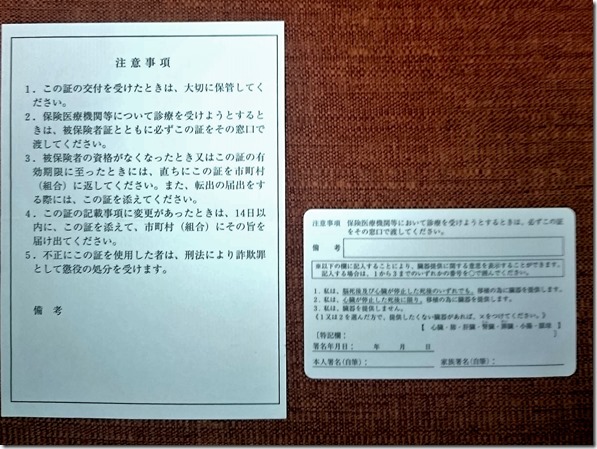 注意事項
1．この証の交付を受けたときは、大切に保管してく
ださい。
2．保険医療機関等について診療を受けようとすると
きは、被保険者証とともに必ずこの証をその窓口で
渡してください。
3．被保険者の資格がなくなったとき又はこの証の有
効期限に至ったときには、直ちにこの証を市町村
（組合）に返してください。また、転出の届出をす
る際には、この証を添えてください。
4．この証の記載事項に変更があったときは、14日以
内に、この証を添えて、市町村（組合）にその旨を
届け出てください。
5．不正にこの証を使用した者は、刑法により詐欺罪
として懲役の処分を受けます。
備　考
注意事項　保険医療機関等において診療を受けようとするときは、必ずこの証
をその窓口で渡してください。
備　考
※以下の欄に記入することにより、臓器提供に関する意思を表示することができます。
記入する場合は、1から3までのいずれかの番号を○で囲んでください。
1．私は、脳死後及び心臓が停止した死後のいずれでも、移植の為に臓器を提供します。
2．私は、心臓が停止した死後に限り、移植の為に臓器を提供します。
3．私は、臓器を提供しません。
《1又は2を選んだ方で、提供したくない臓器があれば、×をつけてください。》
【 心臓・肺・肝臓・腎臓・膵臓・小腸・眼球 】
〔特記欄：　〕
署名年月日：　年　月　日
本人署名(自筆)：　家族署名(自筆)：